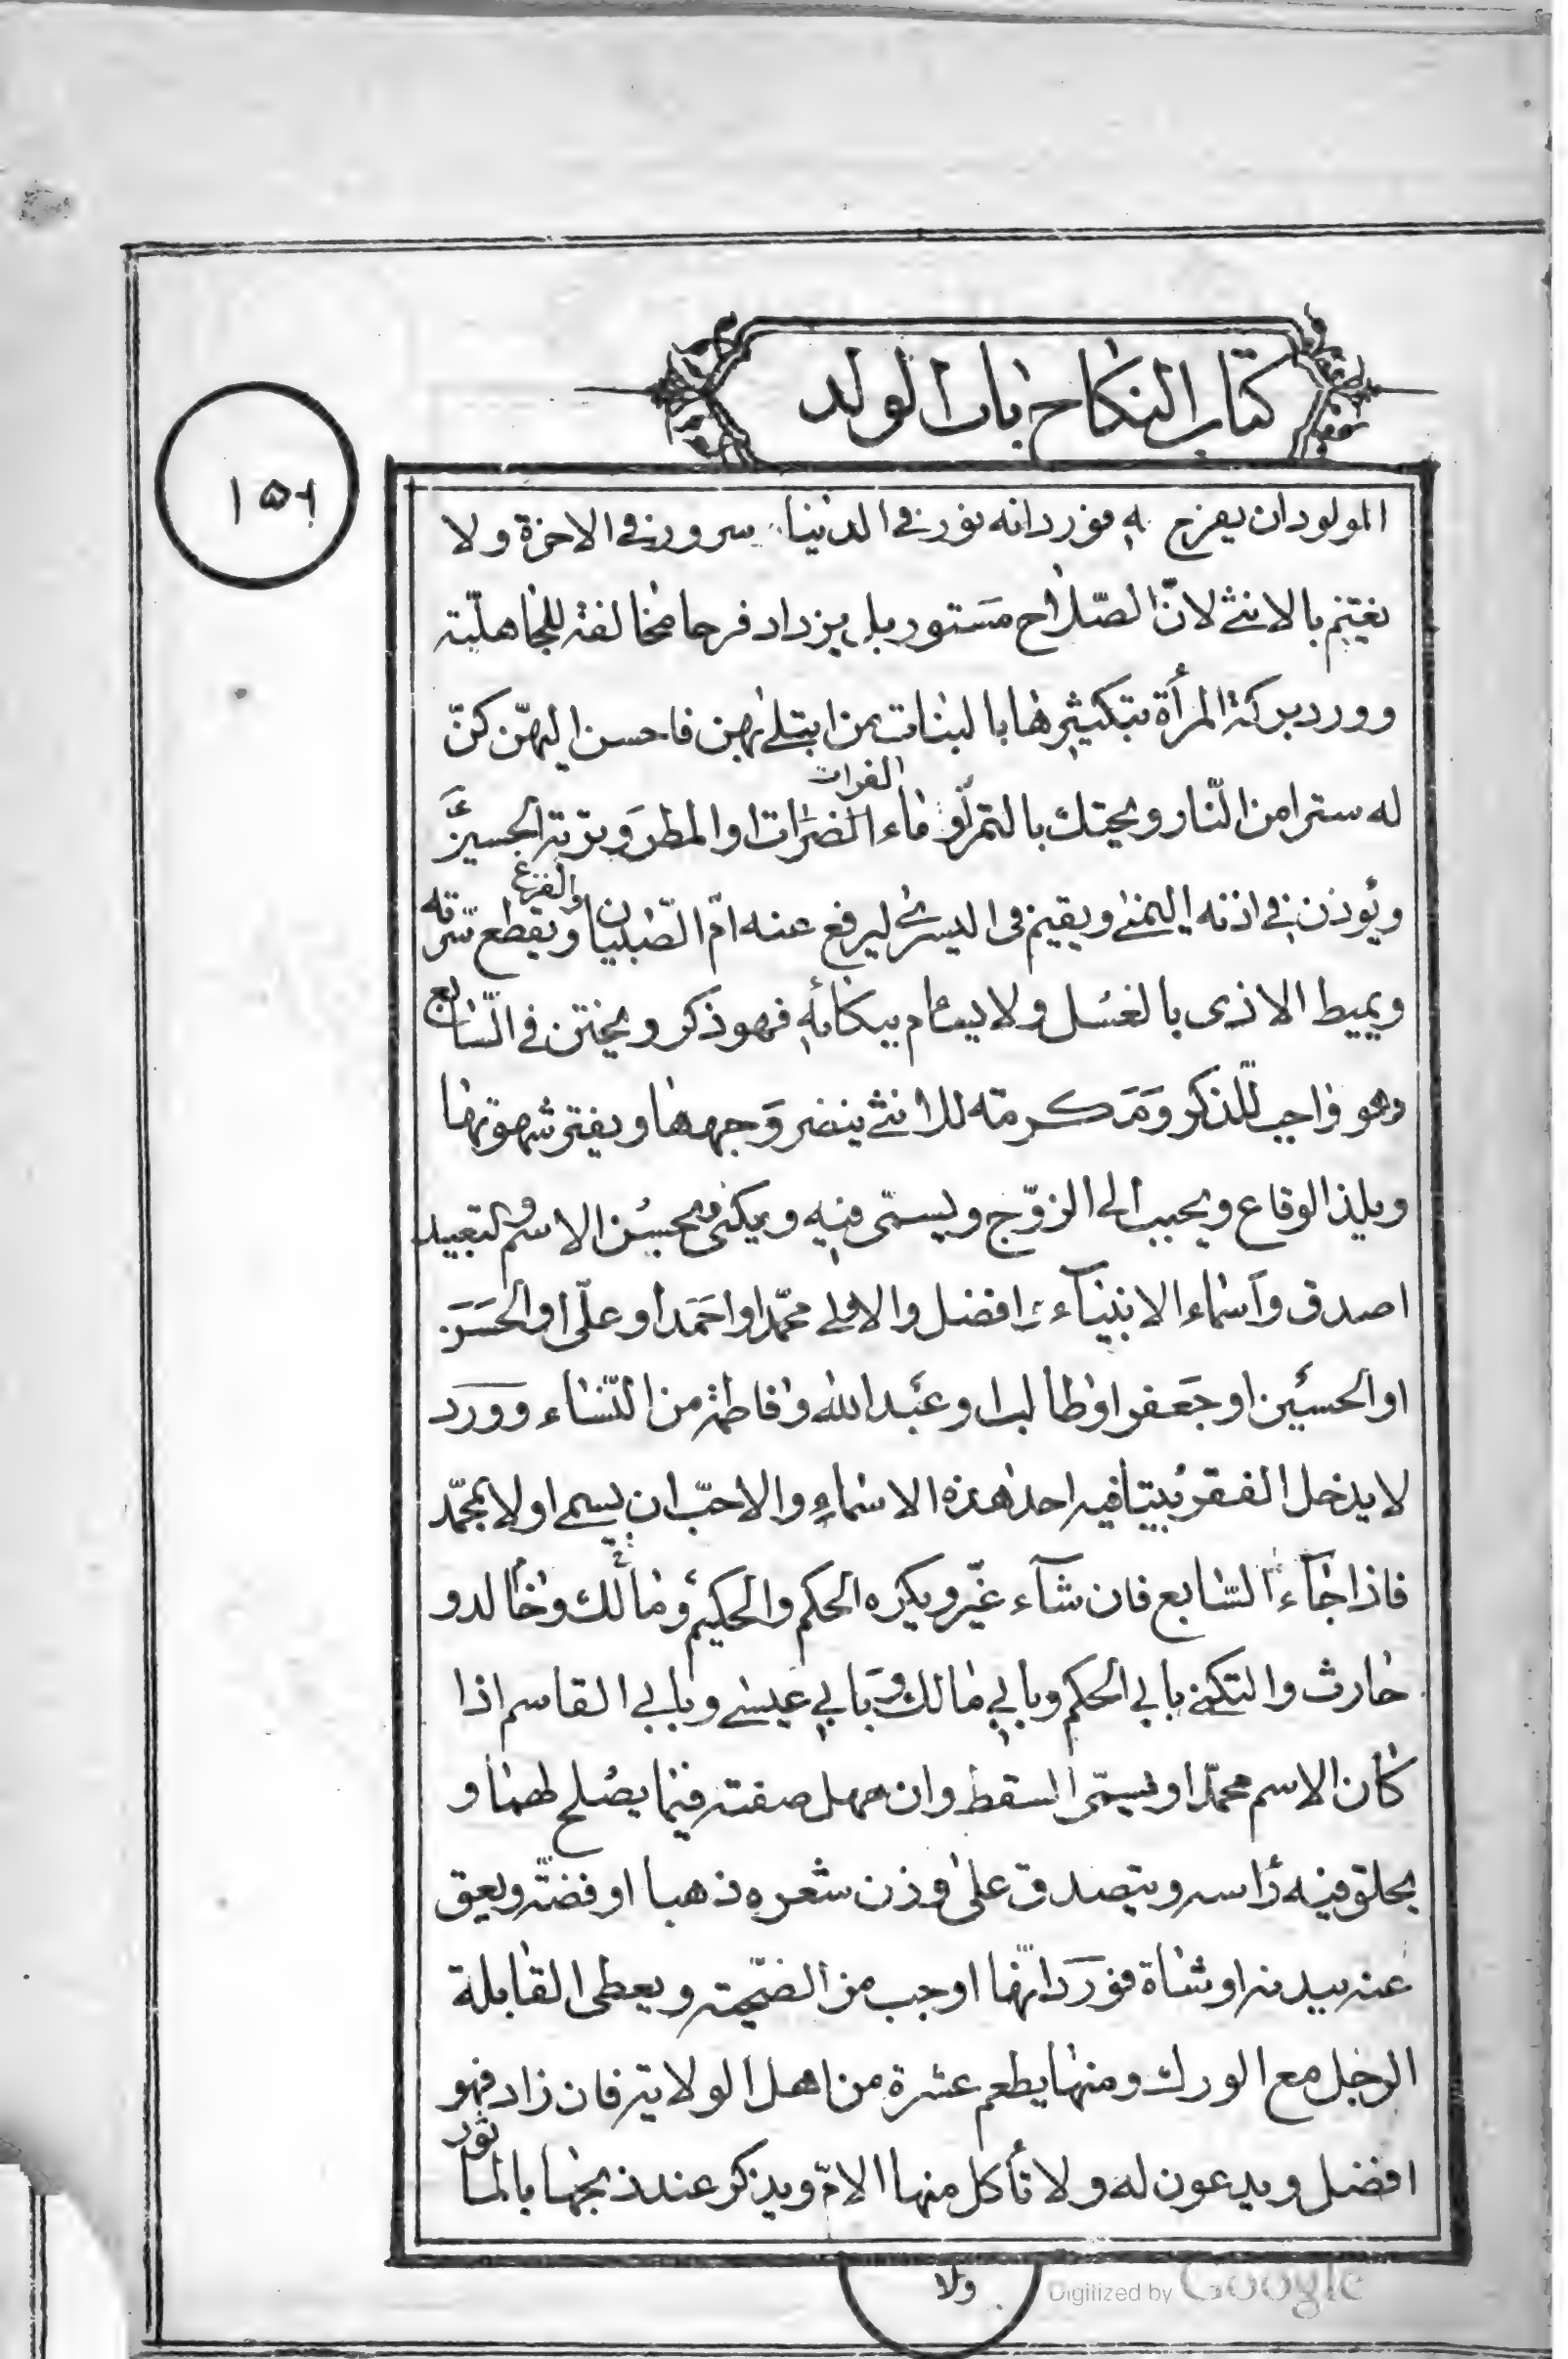 كتاب النكاح باب الولد
١٥٦
المولود ان يفرح به فورد انه نور في الدنيا سرور في الاخرة ولا
يغتم بالانثى لانّ الصّلاح مستور بل يزداد فرحا مخالفة للجاهليّة
وورد بركة المرأة بتكثيرها بالبنات من ابتلى بهن فاحسن اليهنّ كنّ
له سترا من النّار ويحنك بالتمر او ماء الفرات او المطر وبتربة الحسين ع
الفرات
ويُوذن في اذنه اليمنى ويقيم في اليسرى ليرفع عنه امّ الصّبيان والفزع ويقطع سرّته
ويميط الاذى بالغسل ولا يسام ببكائه فهو ذكر ويختن في السّابع
وهو واجب للّذكر ومَكرمة للانثى ينضر وَجهها ويفتر شهوتها
ويلذ الوقاع ويحبب الى الزوّج ويسمّى فيه ويكنى فيحسُن الاسم والتعبيد
اصدق وأسماء الانبيآء افضل والاولى محمّدا واحَمَد او علّى او الحَسَن
او الحسين او جَعفر او طالب او عَبد الله وفاطمة من النّساء وورد
لا يدخل الفقر بُيتا فيه احد هذه الاسماء والاحبّ ان يسمى اولا بمحمّد
فاذا جآء السّابع فان شآء غيّر ويكره الحكم والحكيم ومالك وخالد و
حارث والتكنى بابي الحكم وبابي مالك وبَابي عيسى وبابي القاسم اذا
كان الاسم محمّدا ويسمّى السقط وان جهل صفته فبما يصُلح لهما و
يحلق فيه رأسه ويتصدق على وزن شعره ذهبا او فضّة ويعق
عنه ببدنه او شاة فورَد انّها اوجب من الضحّية ويعطى القابلة
الرجل مع الورك ومنها يطعم عشرة من اهل الولاية فان زاد فهو
افضل ويدعون له ولا تأكل منها الامّ ويذكر عند ذبحها بالماثور
ولا
Digitized by Google